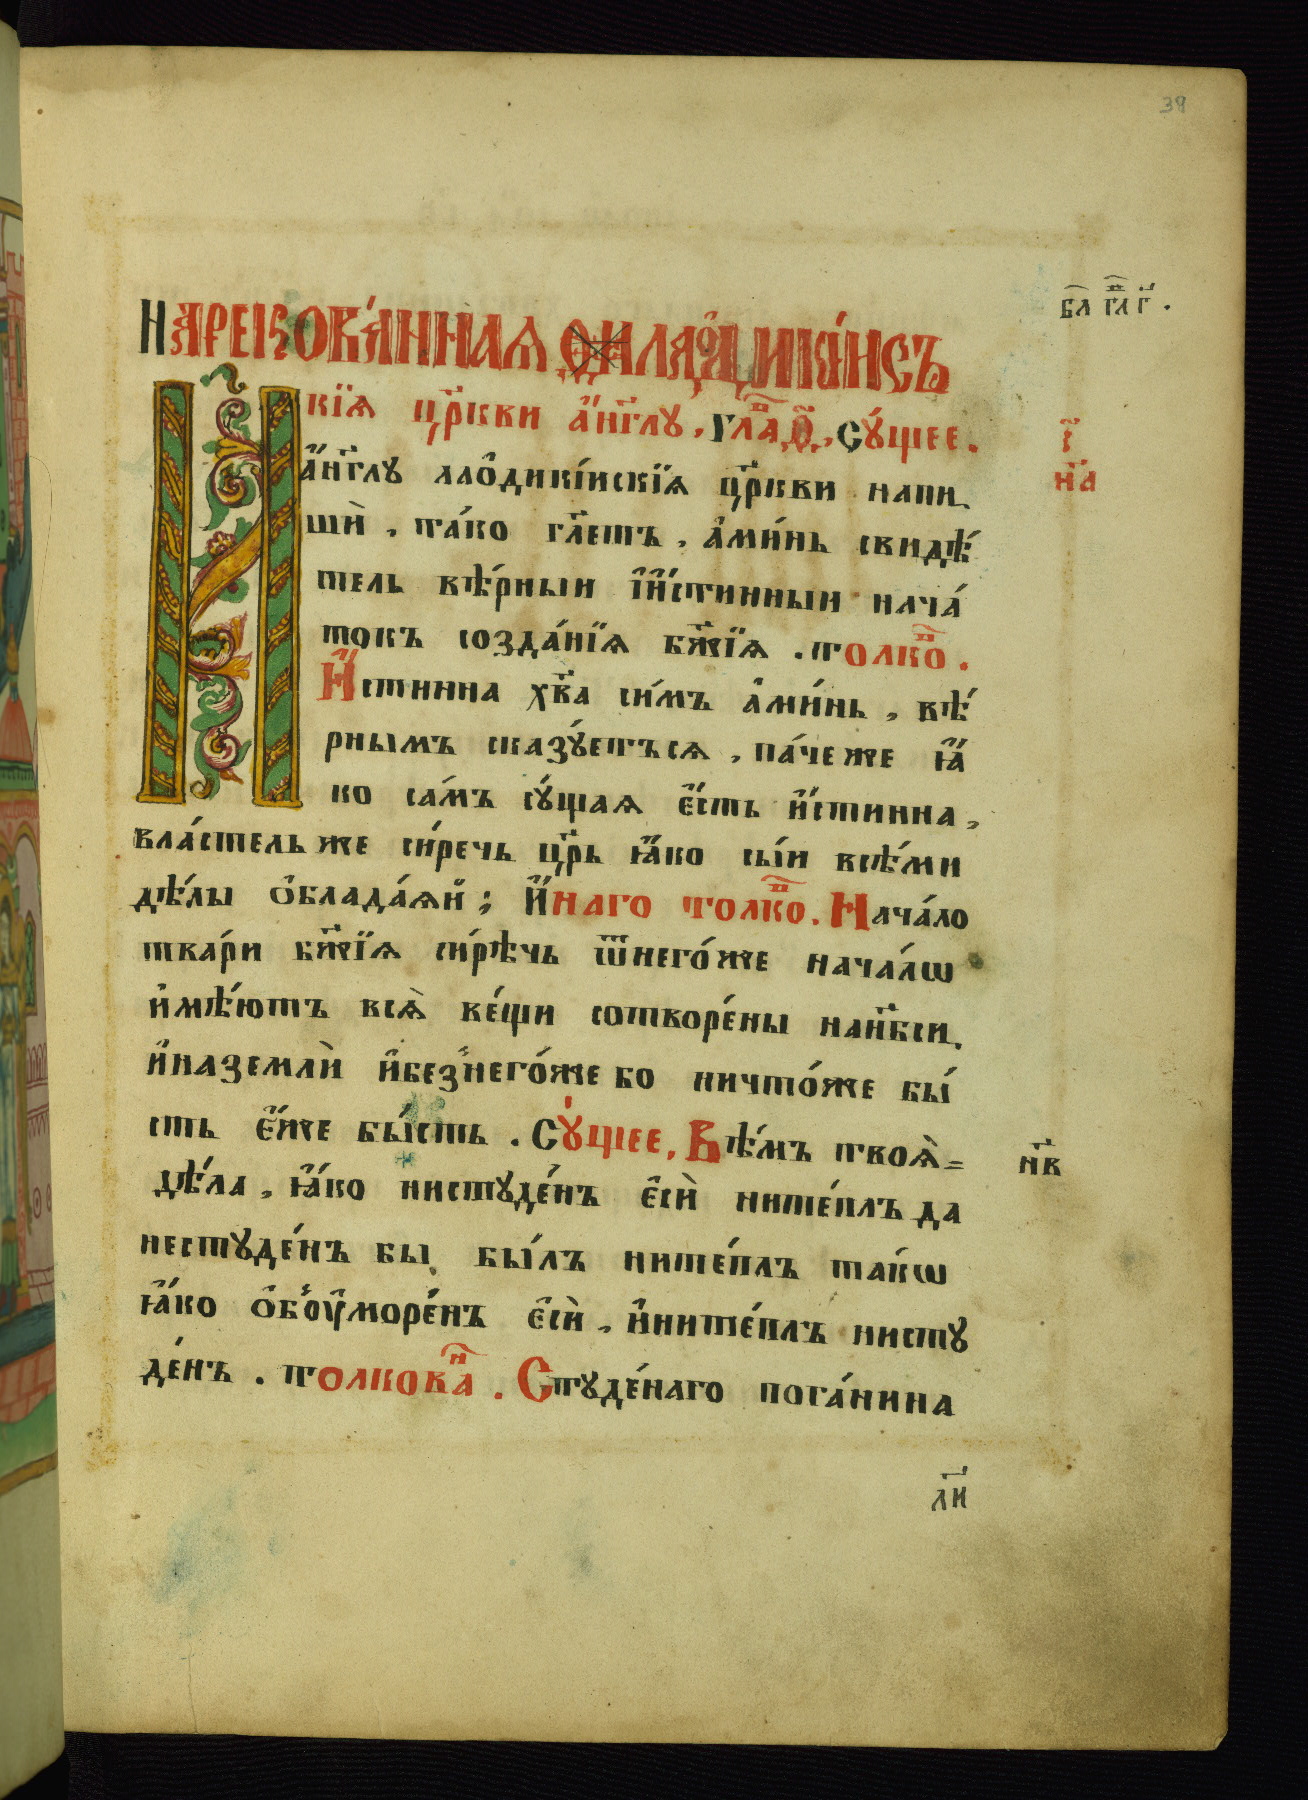 38
Нарекова́нная лаѻдикі́искъ
бл҃ гл҃ г҃
кїѧ цр҃кви а҆́нг҃лу, гла҃ ѳ҃, су́щее.
і҃
а҆́нг҃лу лаѻ҆дикі́искїѧ цр҃кви напи
н҃а
шѝ, та́ко гл҃етъ, а҆ми́нь свидѣ́
тель вѣ́рныи і҆и҆́стинныи нача́
токъ созда́нїѧ бж҃їѧ . толко҃в .
И҆́стинна хв҃а си́мъ а҆ми́нь, вѣ́
рнымъ сказу́етъсѧ, па́че же ꙗ҆́
ко са́мъ су́щаѧ є҆́сть и҆́стинна,
вла́стель же си́речь цр҃ь ꙗ҆́ко сы́и всѣ́ми
дѣ́лы ѻ҆блада́ѧй; И҆на́го толко҃в . Нача́ло
тва́ри бж҃їѧ си́рѣчь ѿнего́же нача́лѡ
и҆мѣ́ютъ всѧ̀ ве́щи сотворе́ны нан҃бси,
и҆наземлѝ и҆без̾него́же бо ничто́же бы́
сть є҆́же бы́сть . Су́щее, Вѣ́мъ твоѧ̀=
н҃в
дѣ́ла, ꙗ҆́ко нистуде́нъ є҆сѝ ните́плъ да
нестуде́нъ бы бы́лъ ните́плъ та́кѡ
ꙗ҆́ко ѻ҆б̾ꙋ҆море́нъ є҆сѝ, и҆ните́плъ нисту
де́нъ . толкова҃н . Студе́наго пога́нина
л҃и